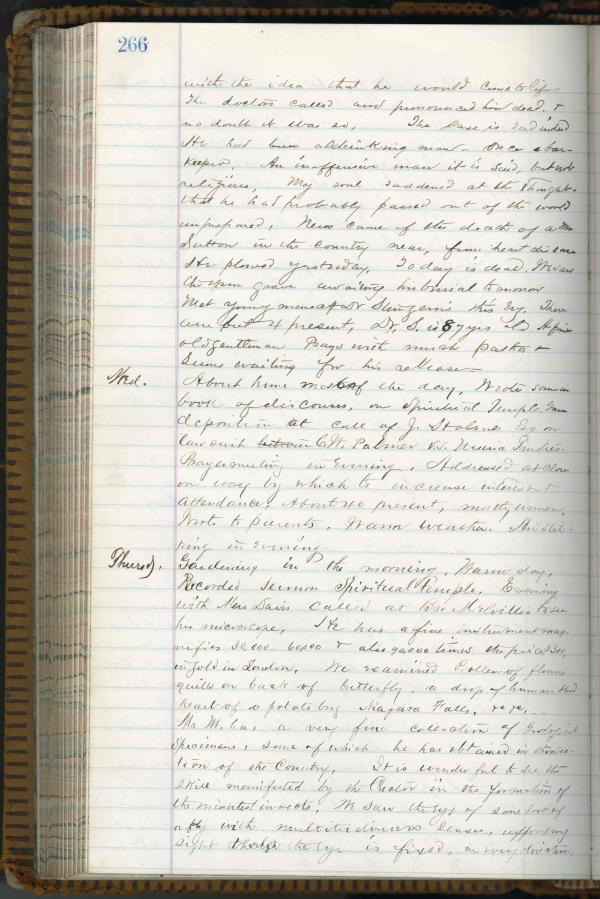 266
with the idea that he would come to life.
The doctors called and pronounced him dead &
no doubt it was so, The case is sad indeed
He had been a drinking man - once a bar-
keeper. An inoffensive man it is said, but not
religious, My soul saddened at the thought
that he had probably passed out of the world
unprepared, News came of the death of a Mr
Sutton in the country near, from heart disease
He plowed yesterday, Today is dead. We saw
the open grave awaiting his burial tomorrow
Met young men at Dr this Evg. There
were but 4 present, Dr. S. is 87 yrs old A fine
old gentleman Prays with much pathos &
seems waiting for his release -
Wed. About home most of the day, Wrote some in
book of discourses, on Spiritual Temple. Gave
deposition at call of J. Holmes Esq on
law suit between C.W. Palmer v.s.
Prayermeeting in Evening. Addressed at close
on way by which to increase interest &
attendance, About 40 present, mostly women,
Wrote to parents. Warm weather.
in Evening.
Thursd. Gardening in the morning, Warm day,
Recorded sermon Spiritual Temple, Evening
with Miss Davis called at Bro Melvilles to see
his microscope, He has a fine instrument mag-
nifies 20.000 60,000 & also 90,000 times the price
in gold in London, We examined Pollen of flower
quills on back of butterfly; a drop of human blood
heart of a potatobug Niagara Falls,
Mr M. has a very fine collection of Geological
Specimens, some of which he has obtained in this sec-
tion of the Country, It is wonderful to see the
skill manifested by the Creator in the formation of
the minutest insects, We saw the eye of some sort of
a fly with multitudinous lenses, affording
sight though the eye is fixed, in every direction,